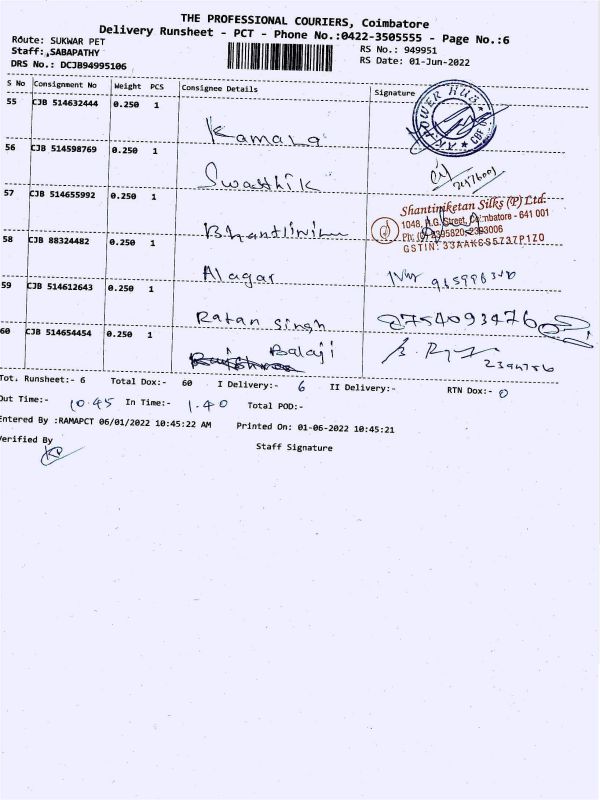 THE PROFESSIONAL COURIERS, Coimbatore
Delivery Runsheet - PCT - Phone No.:0422-3505555 - Page No.:6
Route: SUKWAR PET
RS No.: 949951
Staff: SABAPATHY
RS Date: 01-Jun-2022
DRS No.: DCJB94995106
S No Consignment No Weight PCS Consignee Details Signature
55 CJB 514632444 0.250 1 Kamala
POWER HUB
56 CJB 514598769 0.250 1 Swasthik
57 CJB 514655992 0.250 1
Shantiniketan Silks (P) Ltd.
1048, R.G. Street, Coimbatore - 641 001
GSTIN: 33AAKCS5737P1Z0
58 CJB 88324482 0.250 1 Alagar
59 CJB 514612643 0.250 1 Ratan singh 8754093476
60 CJB 514654454 0.250 1 Balaji
Tot. Runsheet:- 6 Total Dox:- 60 I Delivery:- 6 II Delivery:- RTN Dox:- 0
Out Time:- 10.45 In Time:- 1.40 Total POD:-
Entered By :RAMAPCT 06/01/2022 10:45:22 AM Printed On: 01-06-2022 10:45:21
Verified By
Staff Signature